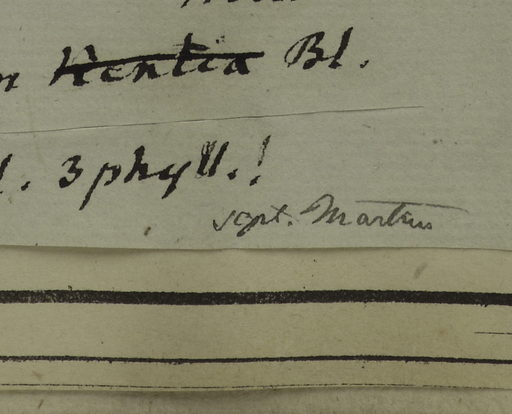 Kentia Bl.
. 3phyll.!
scpt. Martius